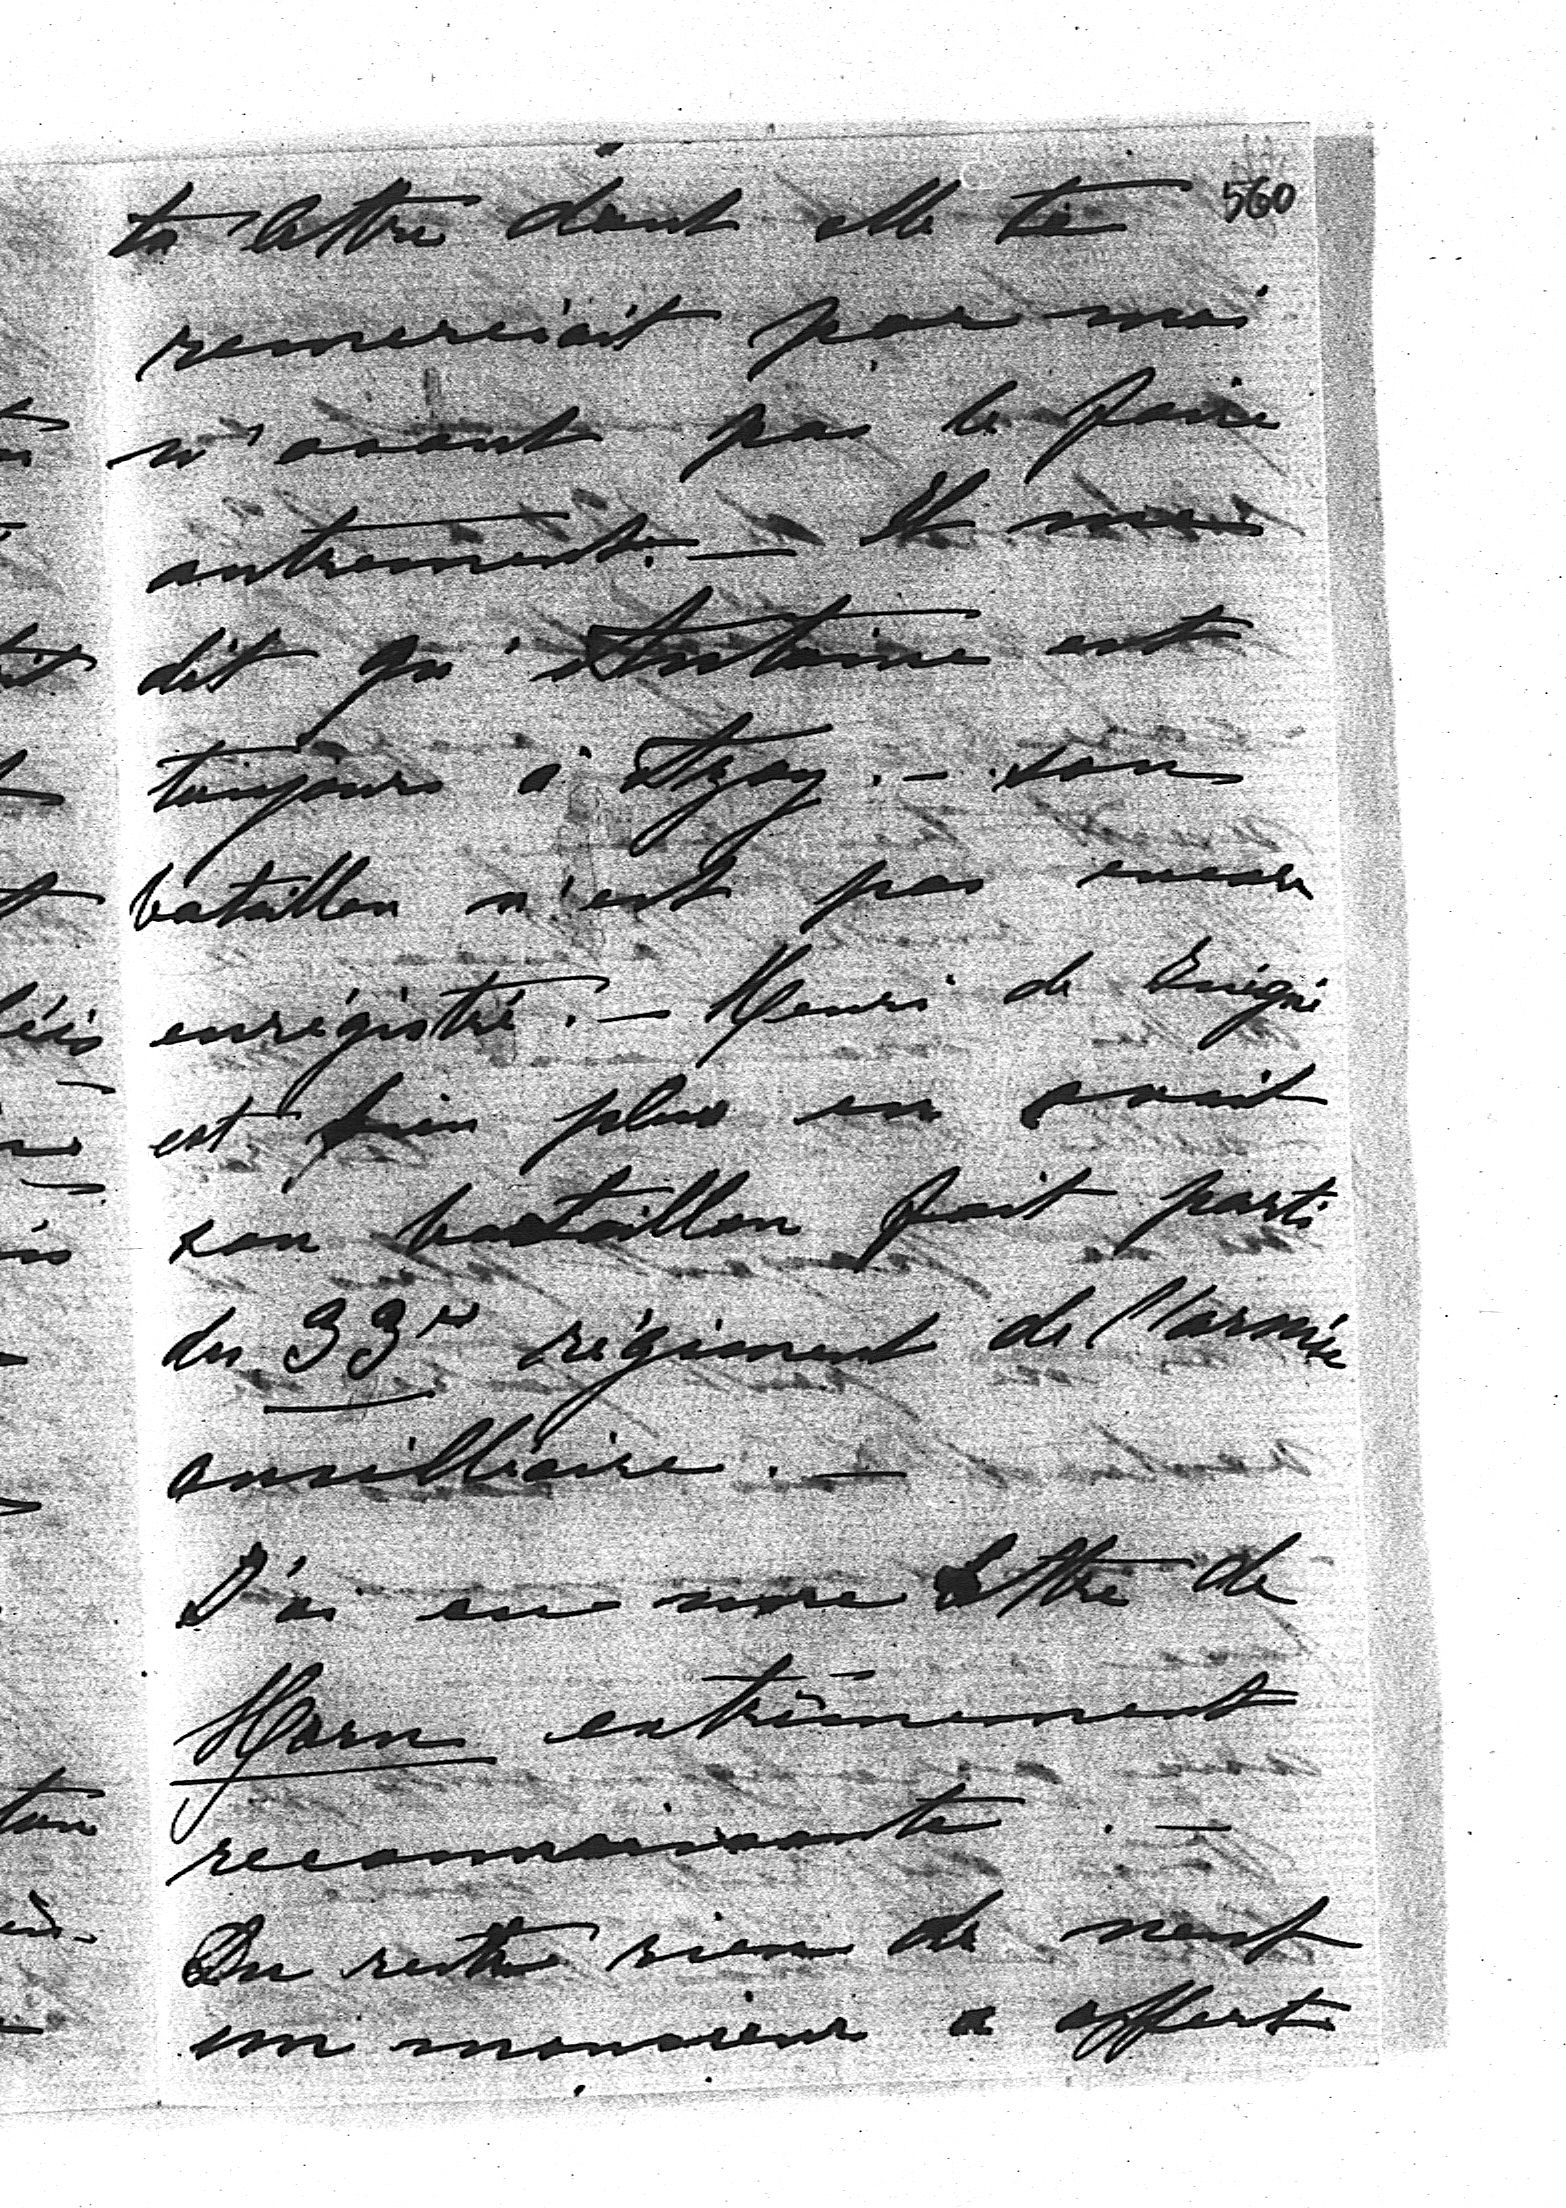 560
ta lettre dont elle te
remerciait par moi
n'osant pas le faire
autrement. — Il me
dit qu'Antoine est
toujours à Izoy. — son
bataillon n'est pas encore
enrégistré. — Henri de
est bien plus en avait
son bataillon fait parti
du 33e régiment de l'armée
auxilliaire. —
J'ai eu une lettre de
Horn extrêmement
reconnaissante. —
Du reste rien de neuf
un monsieur a offert